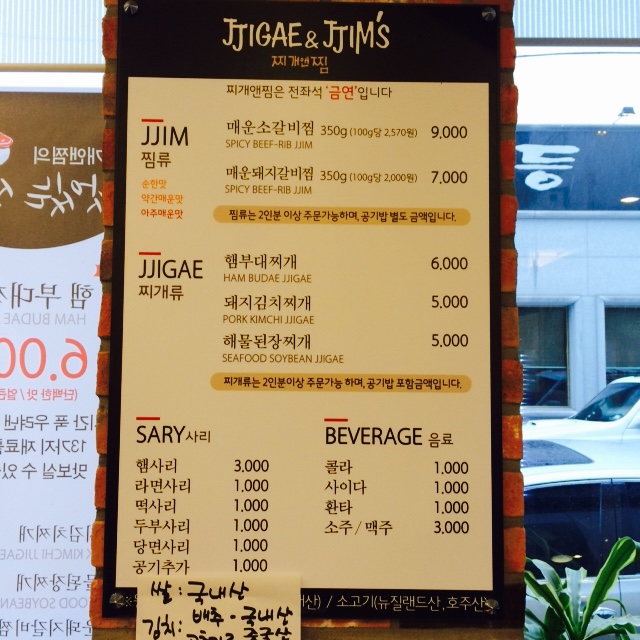 JJIGAE & JJIM'S
찌개앤찜
찌개앤찜은 전좌석 '금연'입니다
JJIM
찜류
순한맛
약간매운맛
아주매운맛
매운소갈비찜 350g (100g당 2,570원) 9,000
SPICY BEEF-RIB JJIM
매운돼지갈비찜 350g (100g당 2,000원) 7,000
SPICY BEEF-RIB JJIM
찜류는 2인분 이상 주문가능하며, 공기밥 별도 금액입니다.
JJIGAE
찌개류
햄부대찌개 6,000
HAM BUDAE JJIGAE
돼지김치찌개 5,000
PORK KIMCHI JJIGAE
해물된장찌개 5,000
SEAFOOD SOYBEAN JJIGAE
찌개류는 2인분이상 주문가능 하며, 공기밥 포함금액입니다.
SARY 사리
햄사리 3,000
라면사리 1,000
떡사리 1,000
두부사리 1,000
당면사리 1,000
공기추가 1,000
BEVERAGE 음료
콜라 1,000
사이다 1,000
환타 1,000
소주 / 맥주 3,000
쌀 : 국내산
김치 : 배추 - 국내산
중국산
/ 소고기(뉴질랜드산, 호주산)
개앤찜의
햄 부대
HAM BUDAE
6.00